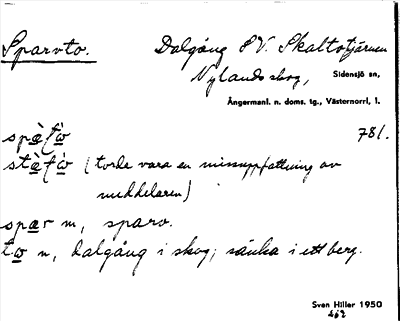 Sparvto. Dalgång SV. Skaltotjärnen
Nylands skog, Sidensjö sn,
Ångermanl. n. doms. tg., Västernorrl. l.
781.
(torde vara en missuppfattning av
meddelaren)
spar m, sparv.
to n, dalgång i skog; sänka i ett berg.
Sven Hiller 1950